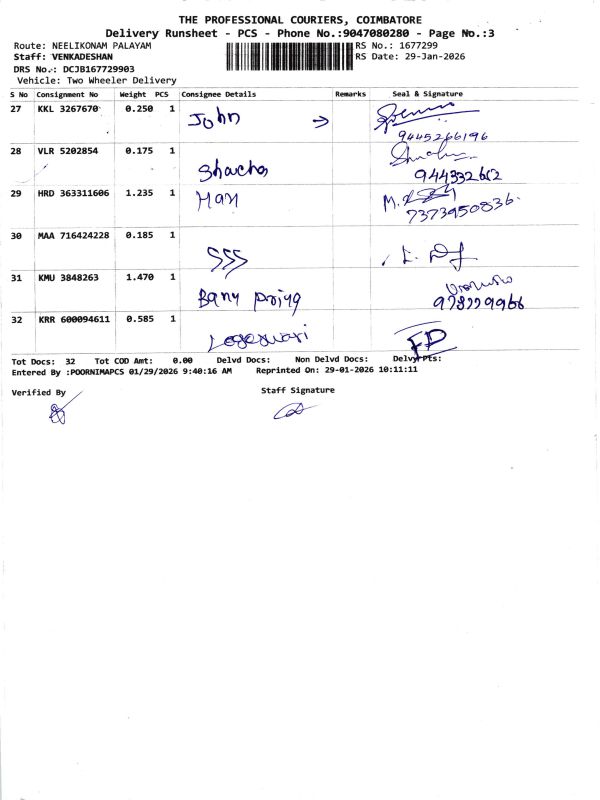 THE PROFESSIONAL COURIERS, COIMBATORE
Delivery Runsheet - PCS - Phone No.:9047080280 - Page No.:3
Route: NEELIKONAM PALAYAM RS No.: 1677299
Staff: VENKADESHAN RS Date: 29-Jan-2026
DRS No.: DCJB167729903
Vehicle: Two Wheeler Delivery
S No Consignment No Weight PCS Consignee Details Remarks Seal & Signature
27 KKL 3267670 0.250 1 John →
9445266196
28 VLR 5202854 0.175 1
944332662
29 HRD 363311606 1.235 1 Hari
7373950836
30 MAA 716424228 0.185 1 SSS
31 KMU 3848263 1.470 1 Banu priya
32 KRR 600094611 0.585 1 Logeswari FD
Tot Docs: 32 Tot COD Amt: 0.00 Delvd Docs: Non Delvd Docs: Delvy Pts:
Entered By :POORNIMAPCS 01/29/2026 9:40:16 AM Reprinted On: 29-01-2026 10:11:11
Verified By Staff Signature